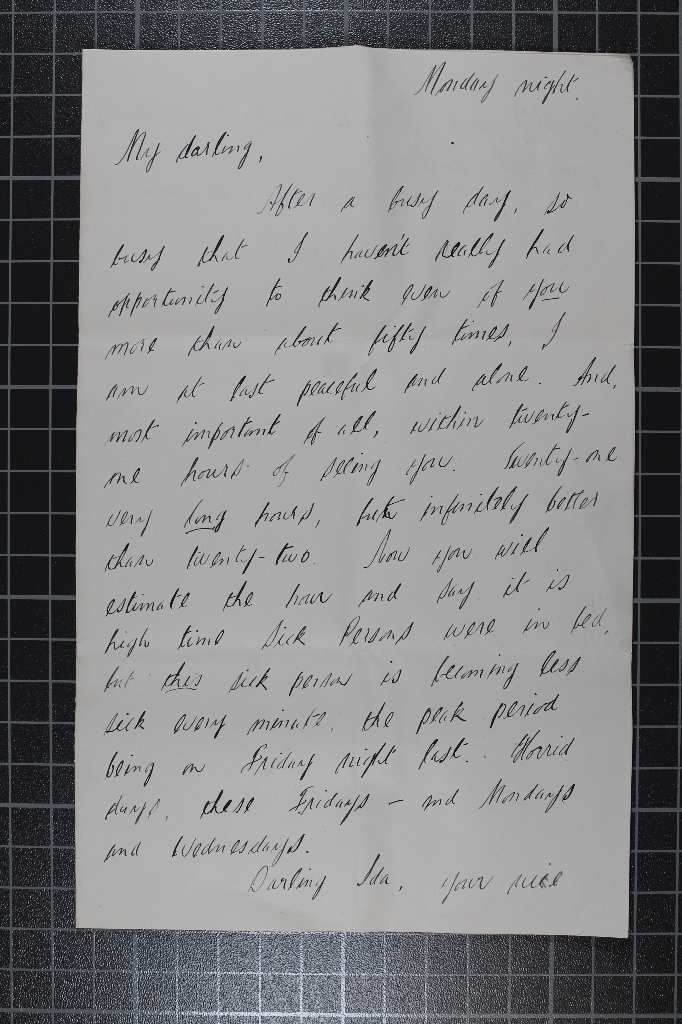 Monday night.
My darling,
After a busy day, so
busy that I haven't really had
opportunity to think even of you
more than about fifty times, I
am at last peaceful and alone. And,
most important of all, within twenty-
one hours of seeing you. Twenty-one
very long hours, but infinitely better
than twenty-two. Now you will
estimate the hour and say it is
high time Sick Persons were in bed,
but this sick person is becoming less
sick every minute, the peak period
being on Friday night last. Horrid
days, these Fridays – and Mondays
and Wednesdays.
Darling Ida, your nice